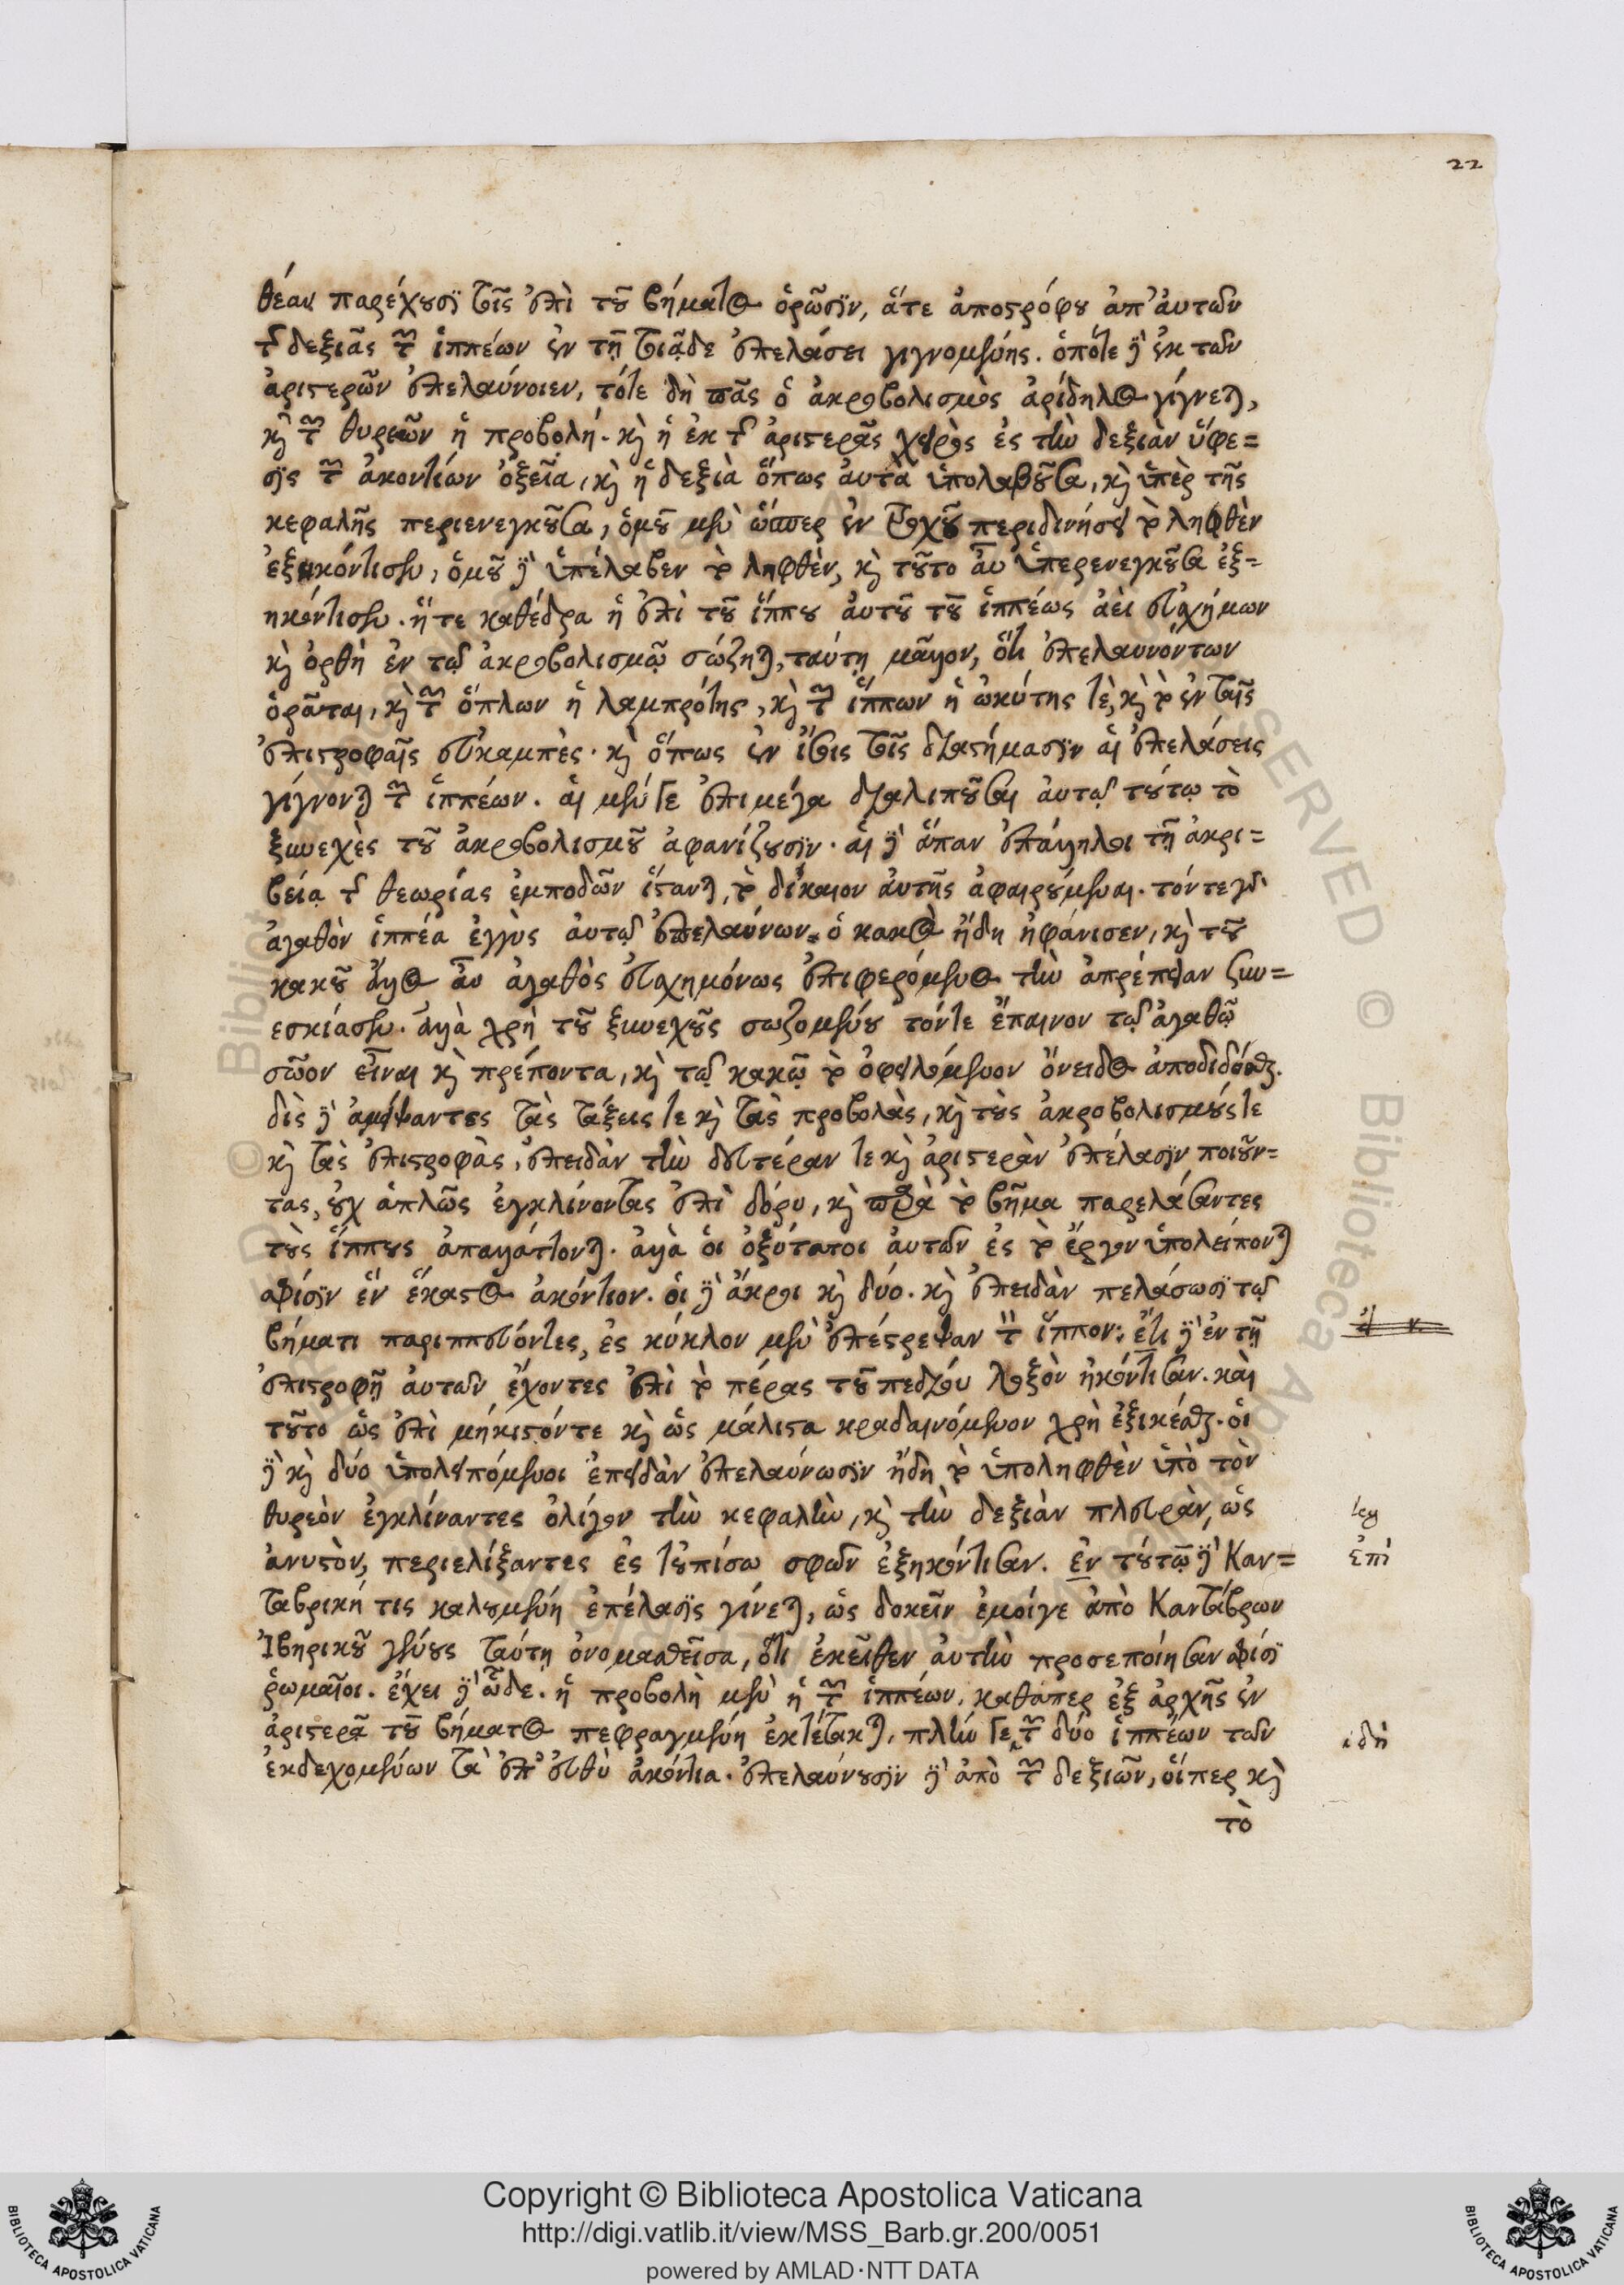 22
θέαν παρέχουσι τοῖς ἐπὶ τοῦ βήματος ὁρῶσιν, ἅτε ἀποστρόφου ἀπ' ἀυτῶν
τῆς δεξιᾶς τῶν ἱππέων ἐν τῇ τοιᾷδε ἐπελάσει γιγνομένης. ὁπότε δὲ ἐκ τῶν
ἀριστερῶν ἐπελαύνοιεν, τότε δὴ πᾶς ὁ ἀκροβολισμὸς ἀρίδηλος γίγνεται,
καὶ τῶν θυρεῶν ἡ προβολή. καὶ ἡ ἐκ τῆς ἀριστερᾶς χειρὸς ἐς τὴν δεξιὰν ὕφε=
σις τῶν ἀκοντίων ὀξεῖα, καὶ ἡ δεξιὰ ὅπως ἀυτὰ ὑπολαβοῦσα, καὶ ὑπὲρ τῆς
κεφαλῆς περιενεγκοῦσα, ὁμοῦ μὲν ὥσπερ ἐν τροχοῦ περιδινήσει τὸ ληφθὲν
ἐξηκόντισεν, ὁμοῦ δὲ ὑπέλαβεν τὸ ληφθὲν, καὶ τοῦτο ἂυ ὑπερενεγκοῦσα ἐξ=
ηκόντισεν. ἥ τε καθέδρα ἡ ἐπὶ τοῦ ἵππου ἀυτοῦ τοῦ ἱππέως ἀεὶ εὐσχήμων
καὶ ὀρθὴ ἐν τῷ ἀκροβολισμῷ σώζηται, ταύτῃ μᾶλλον, ὅτι ἐπελαυνόντων
ὁρᾶται, καὶ τῶν ὅπλων ἡ λαμπρότης, καὶ τῶν ἵππων ἡ ὠκύτης τὲ, καὶ τὸ ἐν ταῖς
ἐπιστροφαῖς εὐκαμπὲς. καὶ ὅπως ἐν ἴσοις τοῖς διαστήμασιν αἱ ἐπελάσεις
γίγνονται τῶν ἱππέων. αἱ μέν γε ἐπιμέγα διαλιποῦσαι ἀυτῷ τούτῳ τὸ
ξυνεχὲς τοῦ ἀκροβολισμοῦ ἀφανίζουσιν. αἱ δὲ ἅπαν ἐπάλληλοι τῇ ἀκρι=
βείᾳ τῆς θεωρίας ἐμποδῶν ἵστανται, τὸ δίκαιον ἀυτῆς ἀφαιρούμεναι. τόν τε γὰρ
ἀγαθὸν ἱππέα ἐγγὺς ἀυτῷ ἐπελαύνων ὁ κακὸς ἤδη ἠφάνισεν, καὶ τοῦ
κακοῦ ἄλλος ἂυ ἀγαθὸς εὐσχημόνως ἐπιφερόμενος τὴν ἀπρέπειαν ξυν=
εσκίασεν. ἀλλὰ χρὴ τοῦ ξυνεχοῦς σωζομένου τόν τε ἔπαινον τῷ ἀγαθῷ
σῶον εἶναι καὶ πρέποντα, καὶ τῷ κακῷ τὸ ὀφειλόμενον ὄνειδος ἀποδιδόσθαι.
δὶς δὲ ἀμείψαντες τὰς τάξεις τε καὶ τὰς προβολὰς, καὶ τοὺς ἀκροβολισμούς τε
καὶ τὰς ἐπιστροφὰς, ἐπειδὰν τὴν δευτέραν τε καὶ ἀριστερὰν ἐπέλασιν ποιοῦν=
τας, οὐχ ἁπλῶς ἐγκλίνοντας ἐπὶ δόρυ, καὶ παρὰ τὸ βῆμα παρελάσαντες
τοὺς ἵππους ἀπαλλάττονται. ἀλλὰ οἱ ὀξύτατοι ἀυτῶν ἐς τὸ ἔργον ὑπολείπονται
σφίσιν ἓν ἕκαστος ἀκόντιον. οἱ δὲ ἄκροι καὶ δύο. καὶ ἐπειδὰν πελάσωσι τῷ
βήματι παριππεύοντες, ἐς κύκλον μὲν ἐπέστρεψαν τὸν ἵππον: ἔτι δὲ ἐν τῇ
ἐπιστροφῇ ἀυτῶν ἔχοντες ἐπὶ τὸ πέρας τοῦ πεδίου λοξὸν ἠκόντισαν. καὶ
τοῦτο ὡς ἐπὶ μήκιστόν τε καὶ ὡς μάλιστα κραδαινόμενον χρὴ ἐξικέσθαι. οἱ
δὲ καὶ δύο ὑπολειπόμενοι ἐπειδὰν ἐπελαύνωσιν ἤδη τὸ ὑποληφθὲν ὑπὸ τὸν
θυρεὸν ἐγκλίναντες ὀλίγον τὴν κεφαλὴν, καὶ τὴν δεξιὰν πλευρὰν, ὡς
ἀνυστὸν, περιελίξαντες ἐς τοὐπίσω σφῶν ἐξηκόντισαν. ἐν τούτῳ δὲ Καν=
ταβρική τις καλουμένη ἐπέλασις γίνεται, ὡς δοκεῖν ἐμοίγε ἀπὸ Καντάβρων
Ἰβηρικοῦ γένους ταύτῃ ὀνομασθεῖσα, ὅτι ἐκεῖθεν ἀυτὴν προσεποίησαν σφίσι
ῥωμαῖοι. ἔχει δὲ ὧδε. ἡ προβολὴ μὲν ἡ τῶν ἱππέων, καθάπερ ἐξ ἀρχῆς ἐν
ἀριστερᾷ τοῦ βήματος πεφραγμένη ἐκτέτακται, πλήν γε τῶν δύο ἱππέων τῶν
ἐκδεχομένων τὰ ἐπ' εὐθὺ ἀκόντια. ἐπελαύνουσιν δὲ ἀπὸ τῶν δεξιῶν, οἵπερ καὶ
τὸ
leg
ἐπὶ
ἰδὴ
Copyright © Biblioteca Apostolica Vaticana
http://digi.vatlib.it/view/MSS_Barb.gr.200/0051
powered by AMLAD·NTT DATA
BIBLIOTECA APOSTOLICA VATICANA
BIBLIOTECA APOSTOLICA VATICANA